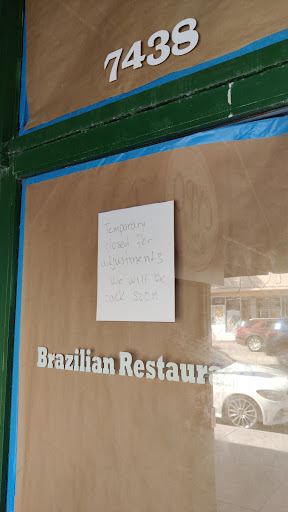 7438
Temporary
closed for
adjustments
We will be
back soon
Brazilian Restaura